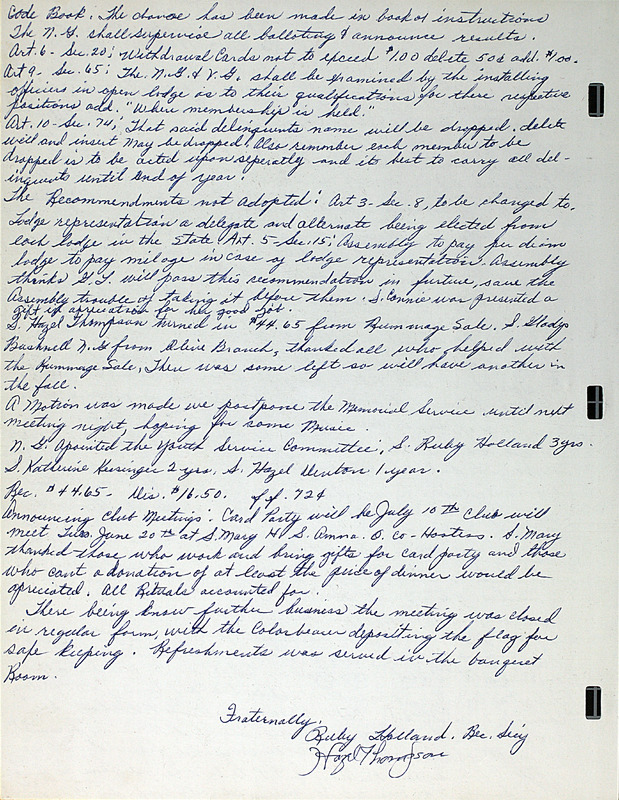 Code Book. The change has been made in book of instructions
The N.G. shall supervise all balloting & announce results.
Art. 6 - Sec. 20; Withdrawal Cards not to exceed $1.00 delete 50¢ add. $1.00.
Art 9 - Sec. 65; The N.G. & V.G. shall be examined by the installing
officers in open lodge as to their qualifications for there respective
positions add. "Where membership is held."
Art. 10 - Sec. 74; That said delinquents name will be dropped. delete
will and insert may be dropped. Also remember each member to be
dropped is to be acted upon seperatly and its best to carry all del-
inquents until end of year.
The Recommendments not adopted; Art 3 - Sec. 8, to be changed to,
Lodge representation a delegate and alternate being elected from
each lodge in the State Art. 5 - Sec. 15; Assembly to pay per diam
lodge to pay milage in case of lodge representation. Assembly
thinks G.L. will pass this recommendation in furture, save the
Assembly trouble of taking it before them. S. Connie was presented a
gift in apriciation for her good job.
S. Hazel Thompson turned in $44.65 from Rummage Sale. S. Gladys
Bushnell N.G. from Olive Branch, thanked all who helped with
the Rummage Sale, There was some left so will have another in
the fall.
A Motion was made we postpone the Memorial Service until next
meeting night, hoping for some Music.
N.G. Apointed the Youth Service Committee, S. Ruby Holland 3 yrs.
S. Katherine Kissinger 2 yrs, S. Hazel Denton 1 year.
Rec. $44.65 - Dis. $16.50. 72¢
Announcing Club Meetings: Card Party will be July 10th Club will
meet Tues. June 20th at S. Mary H. S. Anna. O. Co-Hostess. S. Mary
thanked those who work and bring gifts for card party and those
who cant a donation of at least the price of dinner would be
apreciated. All Rituals accounted for.
There being know further business the meeting was closed
in regular form, with the Colorbearer depositing the flag for
safe keeping. Refreshments was served in the banquet
Room.
Fraternally,
Ruby Holland. Rec. Sec'y
Hazel Thompson